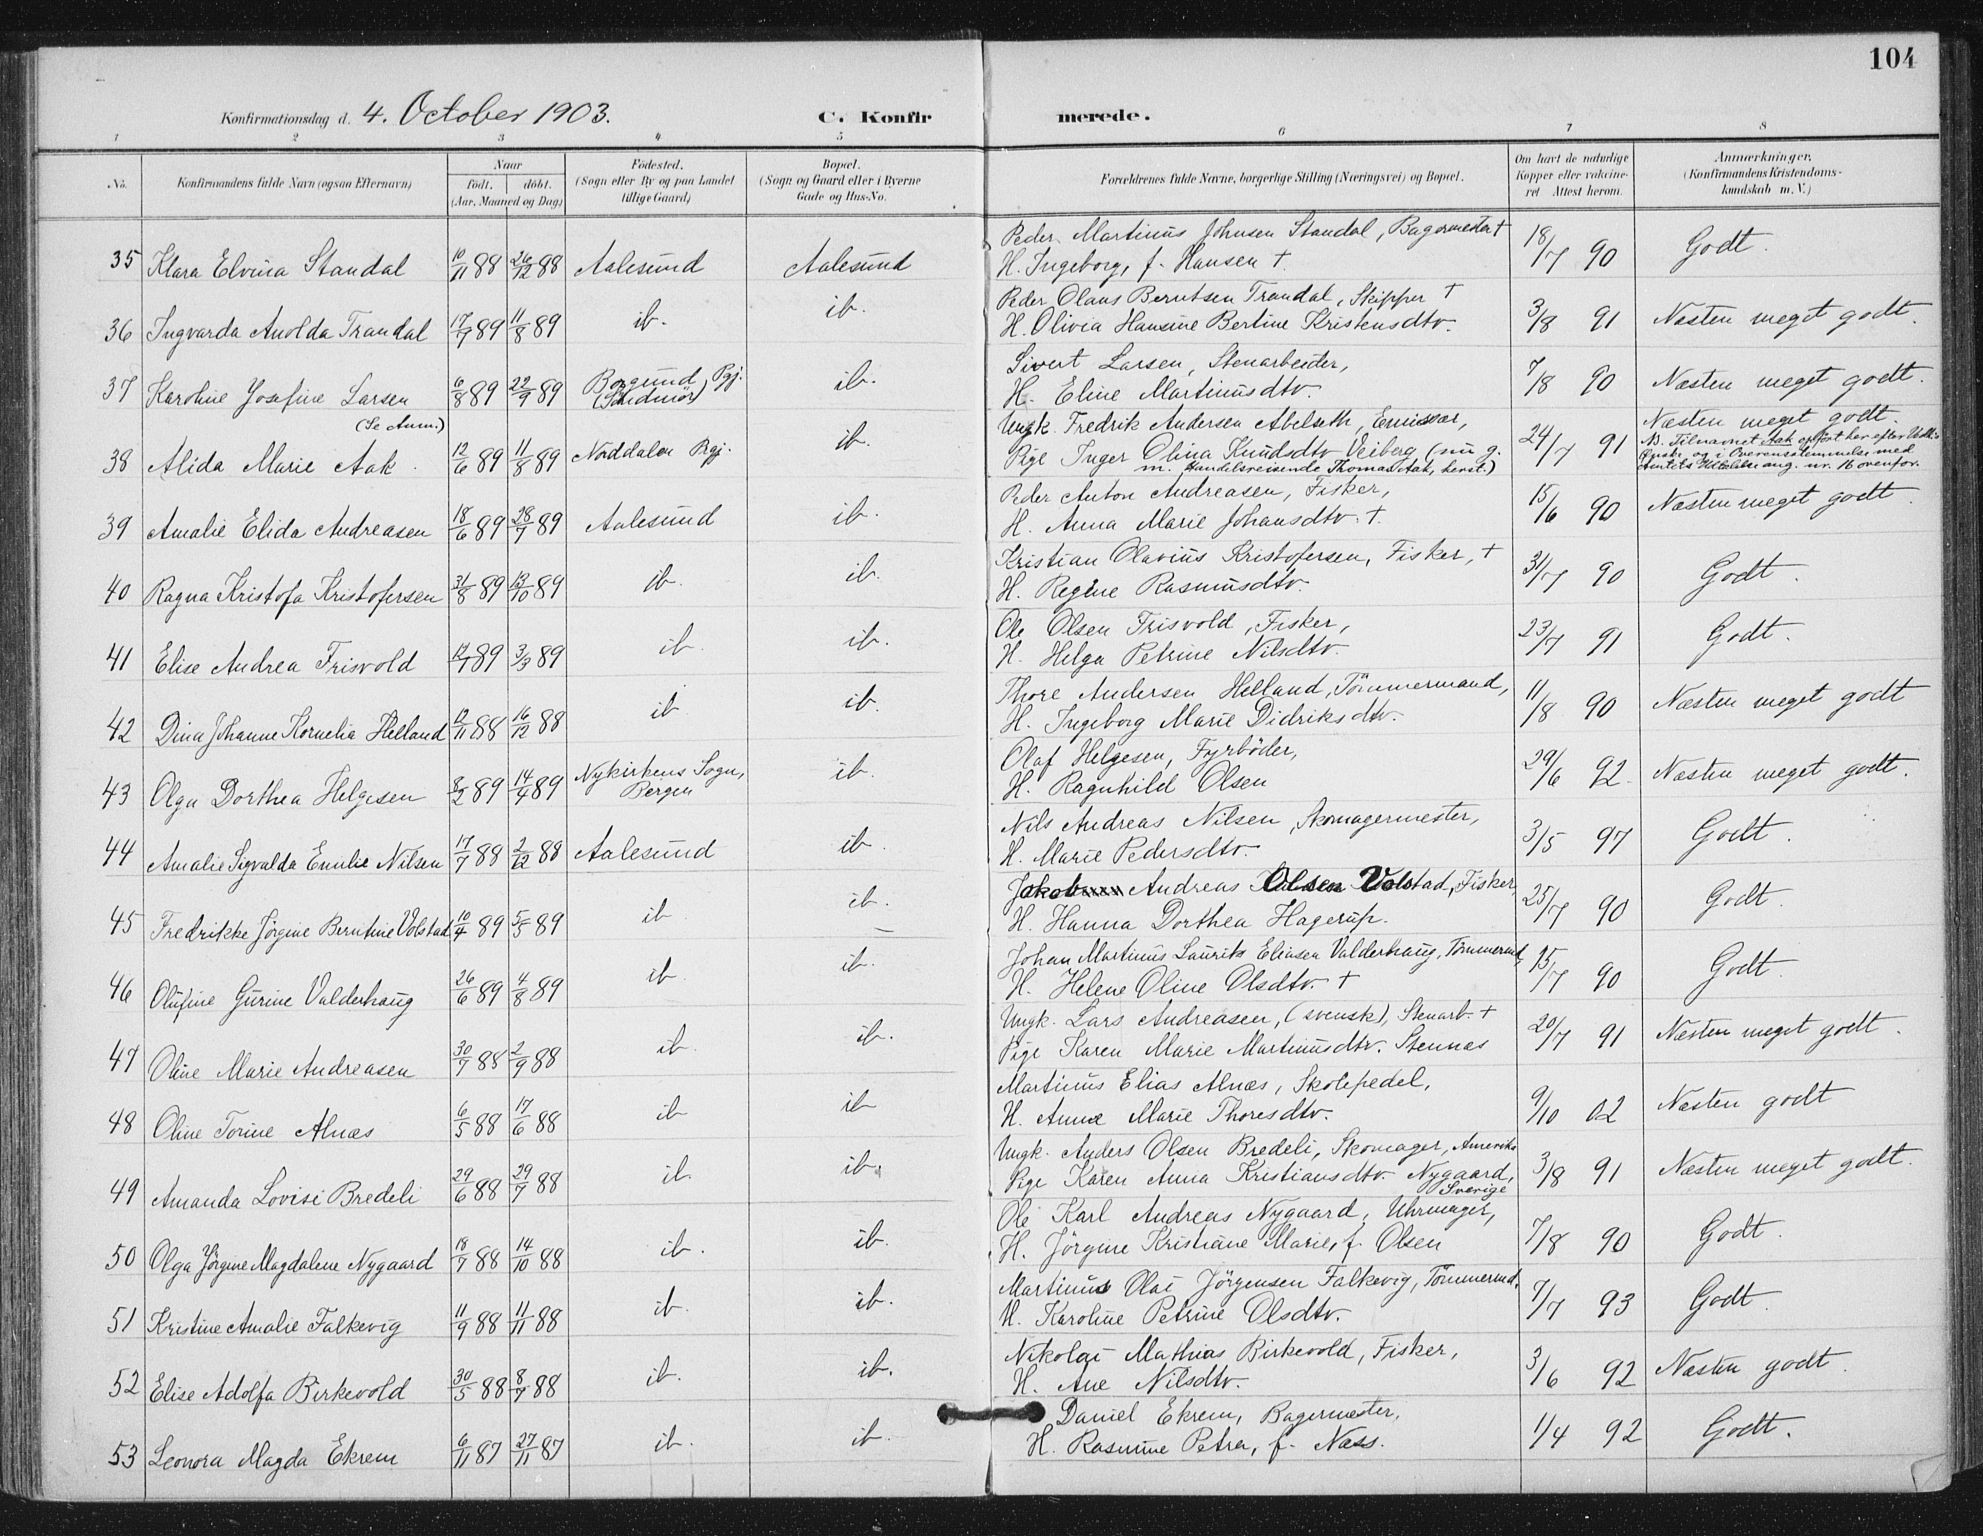 104
Konfirmationsdag d. 4. October 1903. C. Konfirmerede.
1 2 3 4 5 6 7 8
No. Konfirmandens fulde Navn (ogsaa Efternavn) Naar født. døbt. (Aar, Maaned og Dag) Fødested. (Sogn eller By og paa Landet tillige Gaard) Bopæl. (Sogn og Gaard eller i Byerne Gade og Hus-No. Forældrenes fulde Navne, borgerlige Stilling (Næringsvei) og Bopæl. Om havt de naturlige Kopper eller vakcineret Attest herom. Anmærkninger. (Konfirmandens Kristendomskundskab m. V.)
35 Klara Elvina Standal 10/11 88 26/12 88 Aalesund Aalesund Peder Martinus Johnsen Standal, Bagermester † 18/7 90 Godt.
H. Ingeborg, f. Hansen †.
36 Ingvarda Anolda Trandal 17/7 89 11/8 89 ib. ib. Peder Olaus Berntsen Trandal, Skipper † 3/8 91 Næsten meget godt.
H. Olivia Hansine Bertine Kristensdtr.
37 Karoline Josefine Larsen 6/8 89 22/9 89 Borgund Pgj. (Søndmør) ib. Sivert Larsen, Stenarbeider, 7/8 90 Næsten meget godt.
(Se Anm.) H. Eline Martinusdtr.
38 Alida Marie Aak. 12/6 89 11/8 89 Norddalen Pgj. ib. Ungk. Fredrik Andersen Abelseth, Emissær, 24/7 91 Næsten meget godt.
Pige Inger Olina Knudsdtr Veiberg (nu g. m. Handelsreisende Thomas Aak, herst.)
NB. Tilnavnet Aak opført her efter Ønske og i Overensstemmelse med Amtets ang. nr. 16 ovenfor.
39 Amalie Elida Andreasen 18/6 89 28/7 89 Aalesund ib. Peder Anton Andreasen, Fisker, 15/6 90 Næsten meget godt.
H. Anna Marie Johansdtr. †.
40 Ragna Kristofa Kristofersen 31/8 89 13/10 89 ib. ib. Kristian Olavius Kristofersen, Fisker, † 31/7 90 Godt.
H. Regine Rasmusdtr.
41 Elise Andrea Frisvold 17/1 89 3/3 89 ib. ib. Ole Olsen Frisvold, Fisker, 23/7 91 Godt.
H. Helga Petrine Nilsdtr.
42 Dina Johanne Kornelia Helland 12/11 88 16/12 88 ib ib. Thore Andersen Helland, Tømmermand, 11/8 90 Næsten meget godt
H. Ingeborg Marie Didriksdtr.
43 Olga Dorthea Helgesen 8/2 89 14/4 89 Nykirkens Sogn, Bergen ib. Olaf Helgesen, Fyrbøder, 29/6 92. Næsten meget godt.
H. Ragnhild Olsen
44 Amalie Sigvalda Emilie Nilsen 17/7 88 2/12 88 Aalesund ib. Nils Andreas Nilsen, Skomagermester, 3/5 97 Godt.
H. Marie Pedersdtr.
45 Fredrikke Jørgine Berntine Volstad 10/4 89 5/5 89 ib ib. Jakob Andreas Olsen Volstad, Fisker, 25/7 90 Godt.
H. Hanna Dorthea Hagerup.
46 Olufine Gurine Valderhaug 26/6 89 4/8 89 ib. ib. Johan Martinus Laurits Eliasen Valderhaug, Tømmermd, 15/7 90 Godt.
H. Helene Oline Olsdtr. †
47 Oline Marie Andreasen 30/7 88 2/9 88 ib ib. Ungk. Lars Andreasen, (svensk), Stenarb. † 20/7 91 Næsten meget godt.
Pige Karen Marie Martinusdtr. Stennæs
48 Oline Torine Alnæs 6/5 88 17/6 88 ib ib Martinus Elias Alnæs, Skolepedel, 9/10 02 Næsten godt
H. Anna Marie Thoresdtr.
49 Amanda Lovise Bredeli 29/6 88 29/7 88 ib. ib. Ungk. Anders Olsen Bredeli, Skomager, Amerika 3/8 91 Næsten meget godt.
Pige Karen Anna Kristiansdtr. Nygaard, Sverige
50 Olga Jørgine Magdalene Nygaard 18/7 88 14/10 88 ib. ib. Ole Karl Andreas Nygaard, Uhrmager, 7/8 90 Godt.
H. Jørgine Kristiane Marie, f. Olsen
51 Kristine Amalie Falkevig 11/9 88 11/11 88 ib. ib. Martinus Olai Jørgensen Falkevig, Tømmermd. 7/7 93 Godt.
H. Karoline Petrine Olsdtr.
52 Elise Adolfa Birkevold 30/5 88 8/7 88 ib. ib. Nikolai Mathias Birkevold, Fisker, 3/6 92 Næsten godt.
H. Ane Nilsdtr.
53 Leonora Magda Ekrem 6/11 87 27/11 87 ib. ib. Daniel Ekrem, Bagermester, 1/4 92 Godt.
H. Rasmine Petra, f. Næss.